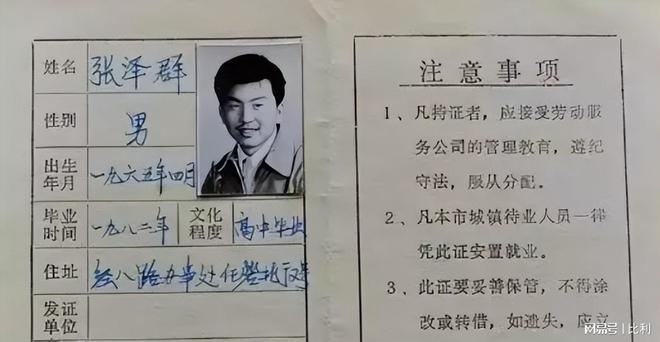 姓名 张泽群
性别 男
出生年月 一九六五年四月
毕业时间 一九八二年 文化程度 高中毕业
住址 经八路办事处任砦北
发证单位
注意事项
1、凡持证者，应接受劳动服
务公司的管理教育，遵纪
守法，服从分配。
2、凡本市城镇待业人员一律
凭此证安置就业。
3、此证要妥善保管，不得涂
改或转借，如遗失，应立
网易号 | 比利